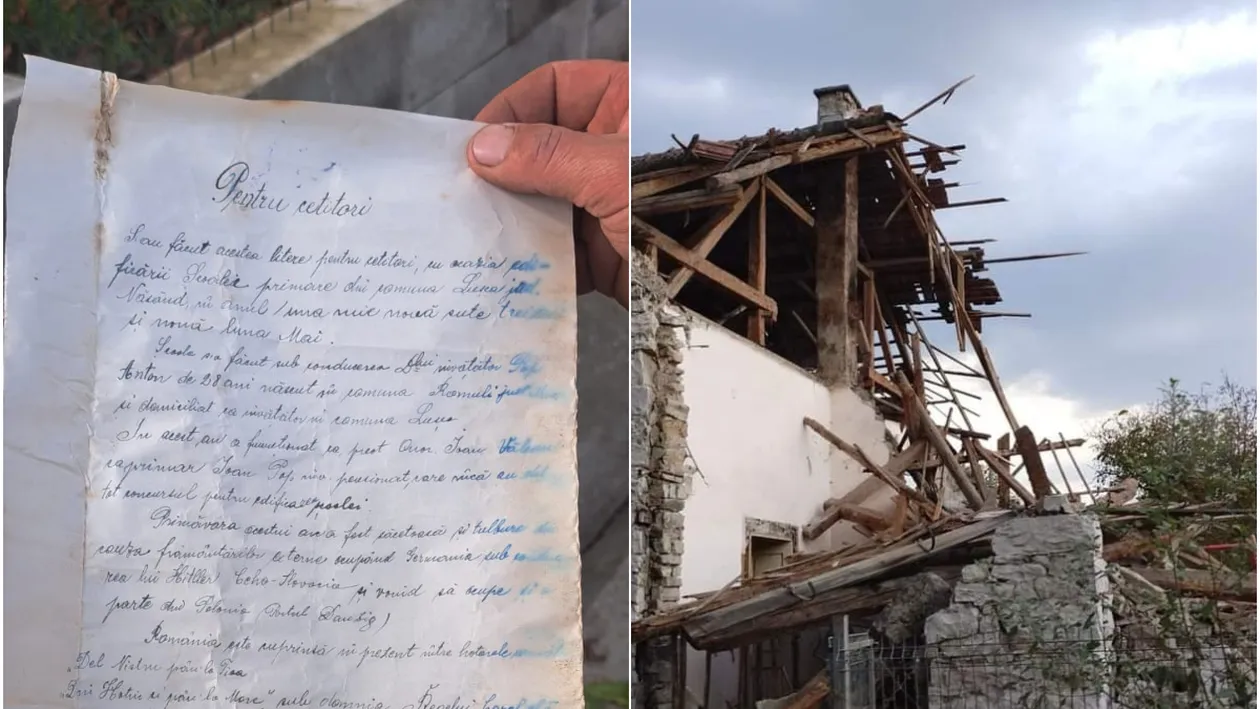 Pentru cetitori
S'au făcut acestea litere pentru cetitori, cu ocazia edi-
ficării Școalei primare din comuna Lușca jud.
Năsăud, în anul una mie nouă sute treizeci
și nouă luna Mai.
Școala s-a făcut sub conducerea Dlui învățător Pop
Anton de 28 ani născut în comuna Romuli jud.
și domiciliat ca învățător în comuna Lușca.
În acest an a funcționat ca preot Onor. Ioan
caprimar Ioan Pop, înv. pensionat, care încă au
tot concursul pentru edificarea școalei.
Primăvara acestui an a fost săcetoasă și tulbure din
cauza frământărilor externe ocupând Germania sub conduce-
rea lui Hitller Ceho-Slovacia și voind să ocupe și o
parte din Polonia Portul Danzig)
România este cuprinsă în prezent între hotarele
"Del Nistru pân' la Tisa
"Din Hotin și pân' la Mare" sub domnia Regelui Carol